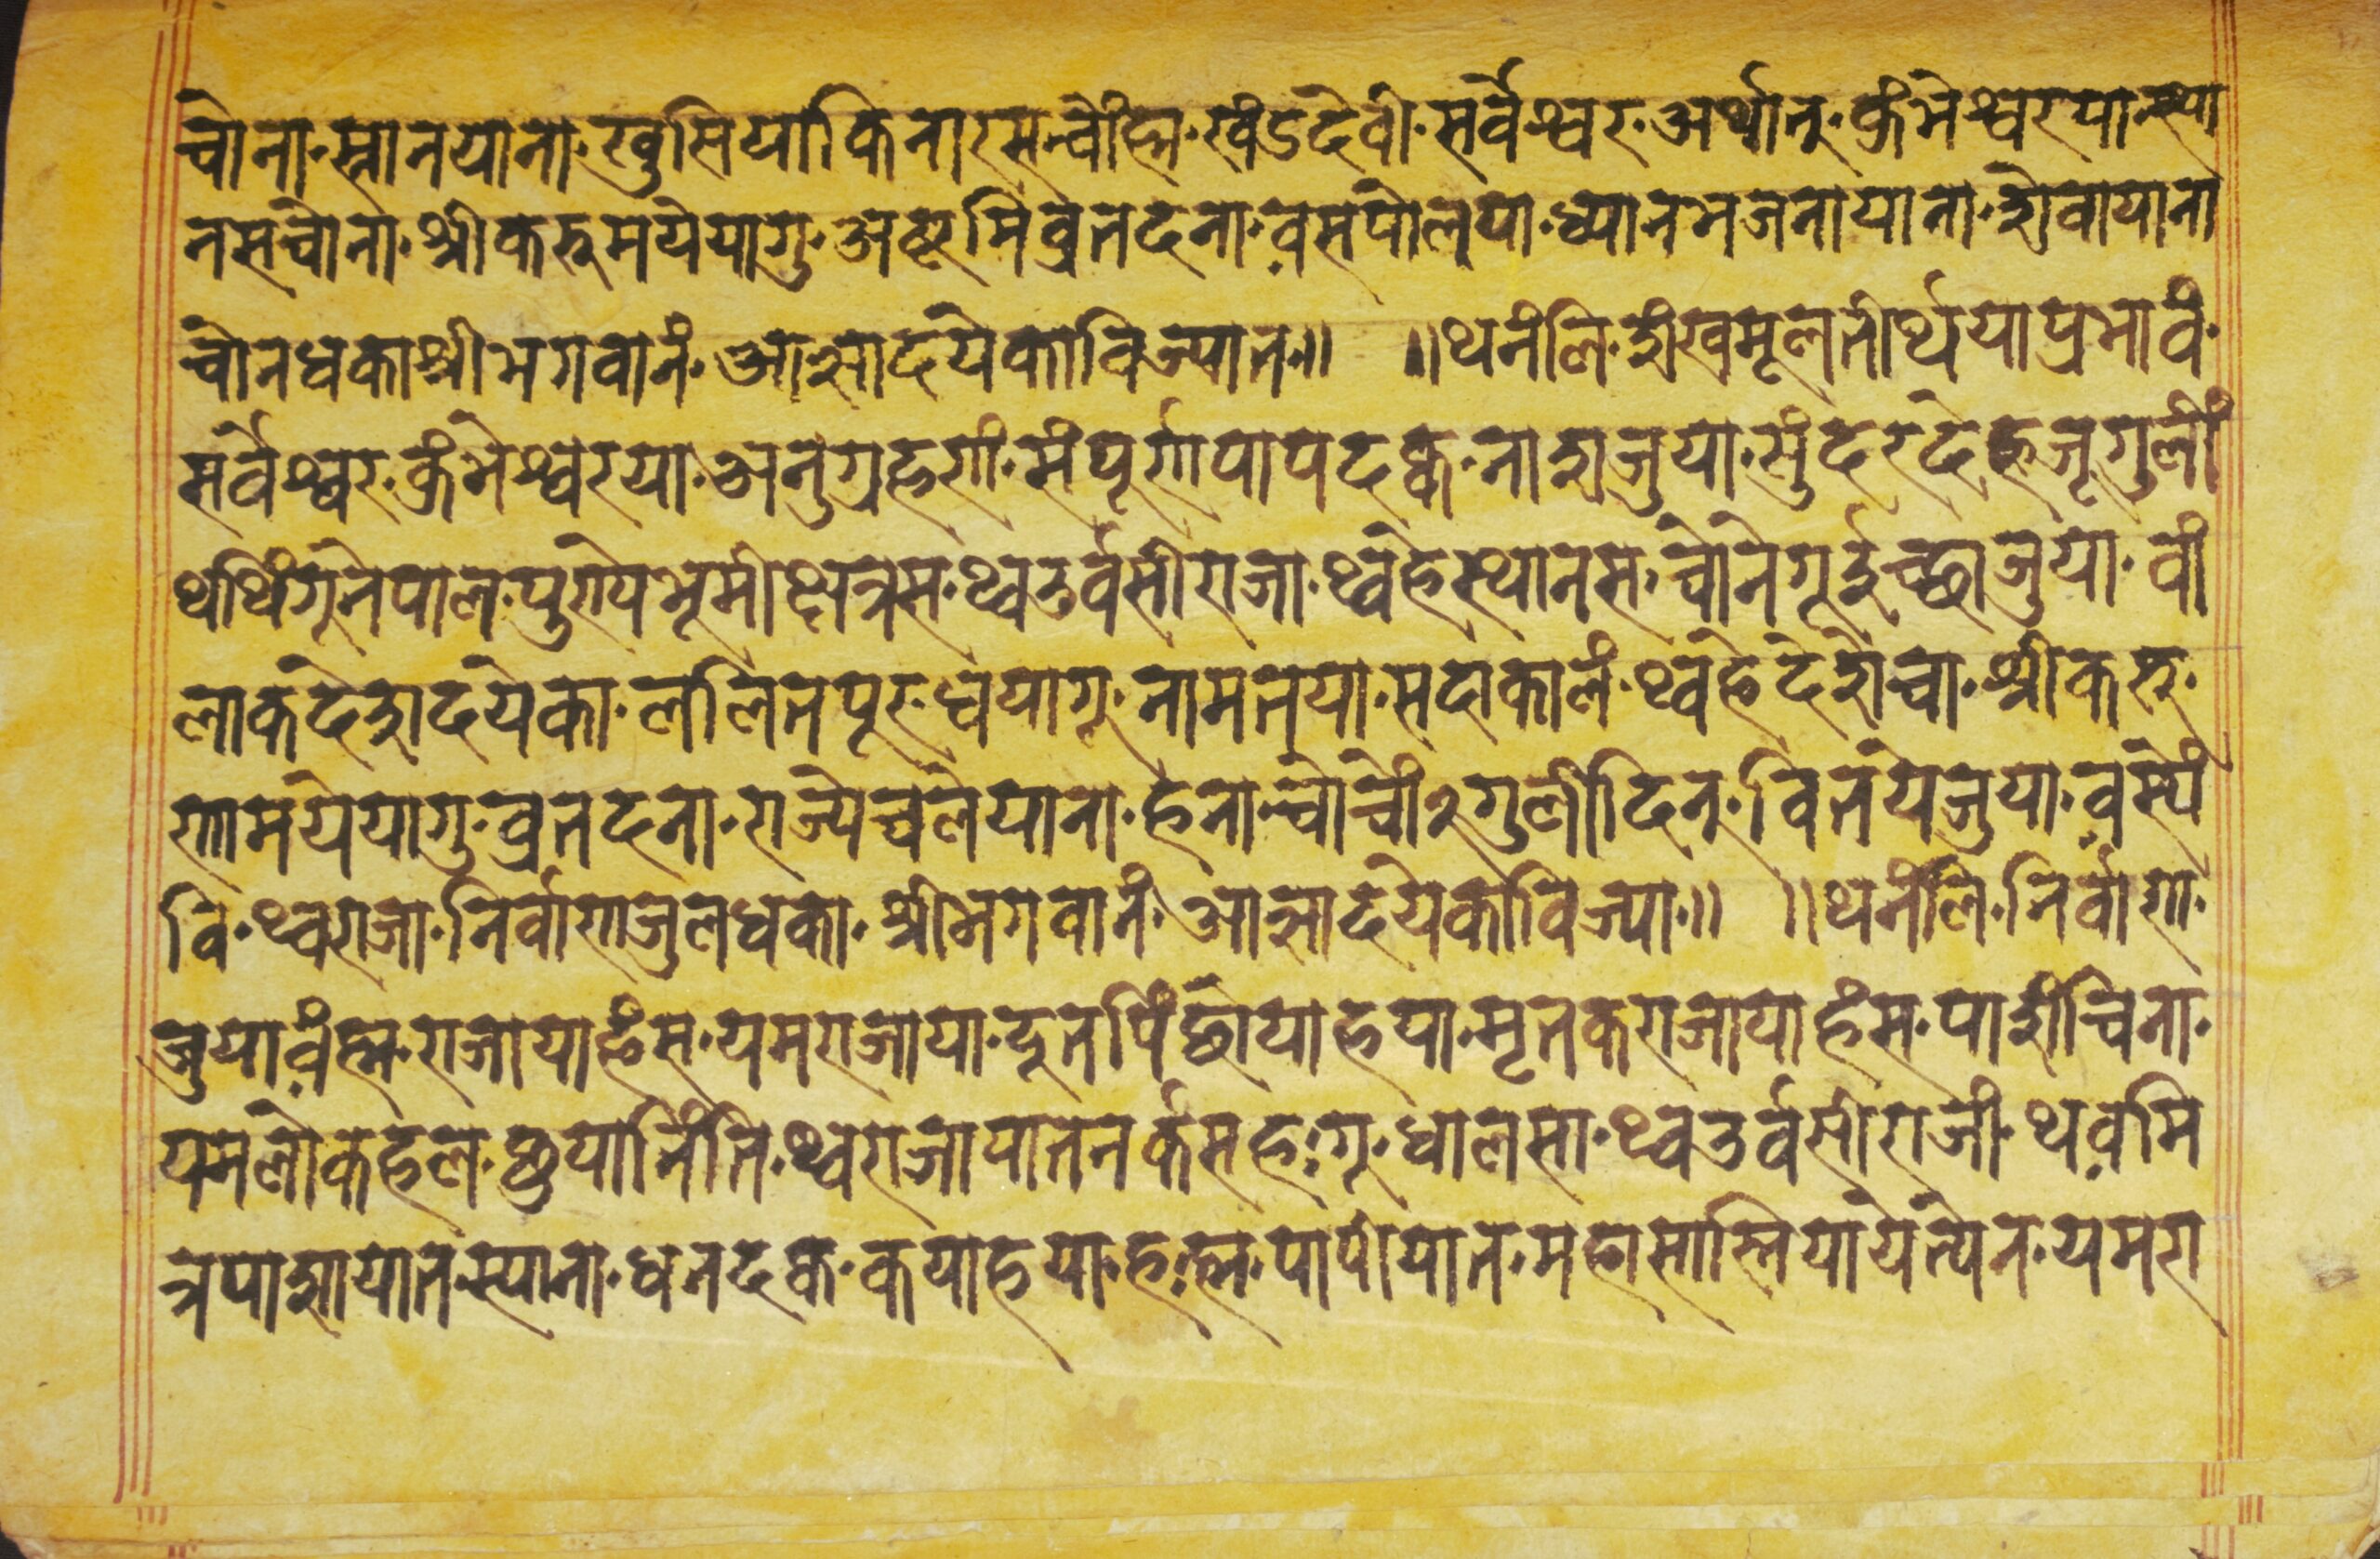 चोना॰स्नानयाना॰खुसियाकिनारसच्वोंह्म॰खंऽदेवी॰सर्वेश्वर॰अर्थानु॰क्रंभेश्वरयान्स्था
नसच्वोना॰श्रीकरुमययागु॰अष्टमिव्रतदना॰व़सपोलपा॰ध्यानभजनायाना॰शेवायाना
चोनधकाश्रीभगवानं॰आज्ञादयेकाविज्यात॰॥ ॥थनंलि॰शंखमूलतीर्थयाप्रभावं॰
सर्वेश्वर॰क्रंभेश्वरया॰अनुग्रहणं॰संपूर्णपापदक्व॰नाशजुया॰सुंदरदेहजूगुलीं
थथिंगूनेपाल॰पुण्यभूमीक्षत्रस॰थ्वउर्वसीराजा॰थ्वहेस्थानस॰चोनेगूइच्छाजुया॰वी
लाकदेशदयेका॰ललितपूर॰धयागू॰नामतया॰सदाकालं॰थ्वहेदेशेच्वा॰श्रीकरु॰
णामययागु॰व्रतदना॰राज्येचलेयाना॰हना॰च्वोच्वों२गुलीदिन॰वितयेजुया॰व़स्यें
वि॰थ्वराजा॰निर्वाणजुलधका॰श्रीभगवानं॰आज्ञादयेकाविज्या॰॥ ॥थनंलि॰निर्वाण॰
जुयाव़ंह्म॰राजायाहंस॰यमराजाया॰दूतपिंछोयाहया॰मृतकराजायाहंस॰पाशंचिना॰
यमलोकहल॰छुयानिंति॰थ्वराजापातनर्कसह़॰गू॰धालसा॰थ्वउर्वसीराजां॰थव़मि
त्रपाशायात॰स्याना॰धनदक्व॰कयाहया॰ह़ह्म॰पापीयात॰महासास्तियायेत्येन॰यमरा